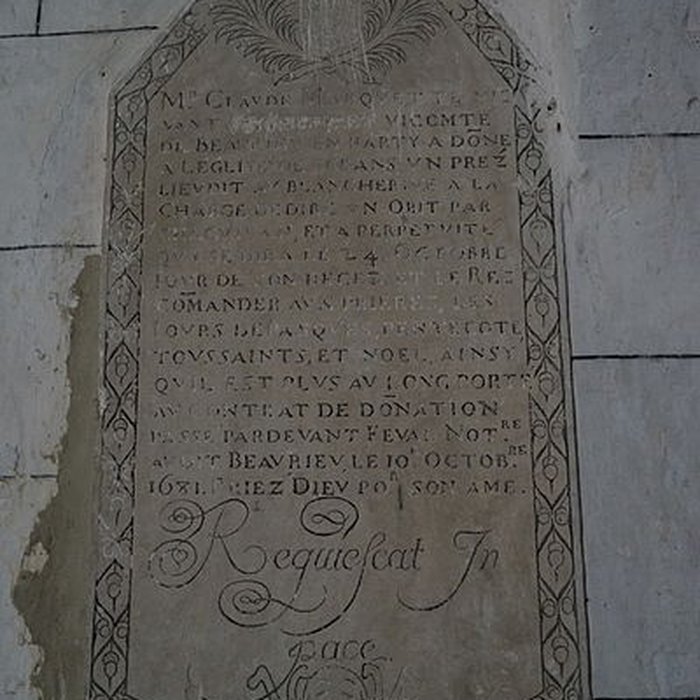 Mʳ CLAVDE MARQVET
VANT VICOMTE
DE BEAVRIEV EN PARTY A DŌNE
A LEGLISE DE CEANS VN PREZ
LIEVDIT A LA
CHARGE DE DIRE VN OBIT PAR
ET A PERPETVITE
LE 24 OCTOBRE
IOVR DE SON DECEZ, ET LE REZ
COM̄ANDER AVX PRIERES, LES
IOVRS DE PASQVES PENTECOTE,
TOVSSAINTS, ET NOEL, AINSY
QVIL EST PLVS AV LONG PORTE
AV CONTRAT DE DON̄ATION
PASSÉ PARDEVANT FEVAL NOTᴿᴱ
AVDIT BEAVRIEV, LE 10 OCTOBᴿᴱ
1681. PRIEZ DIEV POʳ SON AME.
Requieſcat In
pace